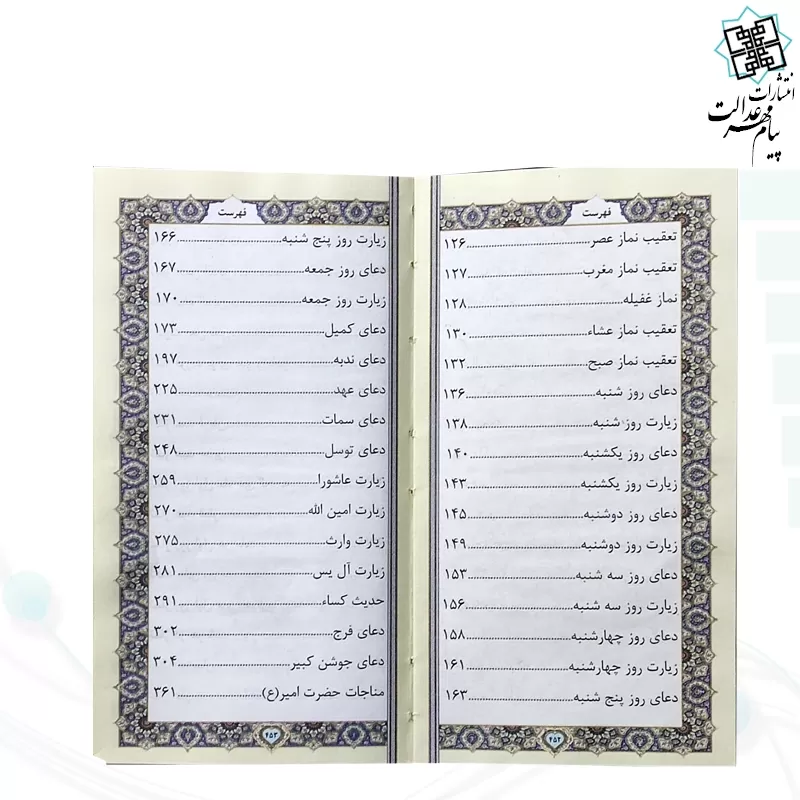 انتشارات
پیام مهر عدالت
فهرست
تعقیب نماز عصر..........۱۲۶
تعقیب نماز مغرب..........۱۲۷
نماز غفیله..........۱۲۸
تعقیب نماز عشاء..........۱۳۰
تعقیب نماز صبح..........۱۳۲
دعای روز شنبه..........۱۳۶
زیارت روز شنبه..........۱۳۸
دعای روز یکشنبه..........۱۴۰
زیارت روز یکشنبه..........۱۴۳
دعای روز دوشنبه..........۱۴۵
زیارت روز دوشنبه..........۱۴۹
دعای روز سه شنبه..........۱۵۳
زیارت روز سه شنبه..........۱۵۶
دعای روز چهارشنبه..........۱۵۸
زیارت روز چهارشنبه..........۱۶۱
دعای روز پنج شنبه..........۱۶۳
۴۵۲
فهرست
زیارت روز پنج شنبه..........۱۶۶
دعای روز جمعه..........۱۶۷
زیارت روز جمعه..........۱۷۰
دعای کمیل..........۱۷۳
دعای ندبه..........۱۹۷
دعای عهد..........۲۲۵
دعای سمات..........۲۳۱
دعای توسل..........۲۴۸
زیارت عاشورا..........۲۵۹
زیارت امین الله..........۲۷۰
زیارت وارث..........۲۷۵
زیارت آل یس..........۲۸۱
حدیث کساء..........۲۹۱
دعای فرج..........۳۰۲
دعای جوشن کبیر..........۳۰۴
مناجات حضرت امیر(ع)..........۳۶۱
۴۵۳